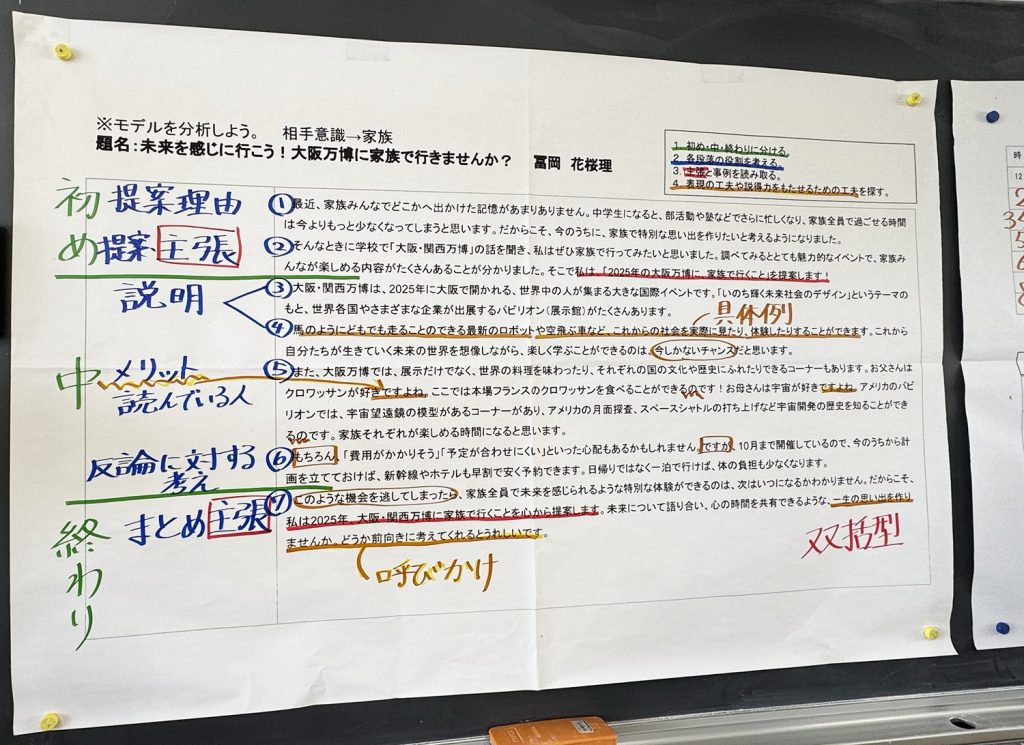 ※モデルを分析しよう。　相手意識→家族
題名：未来を感じに行こう！大阪万博に家族で行きませんか？　冨岡　花桜理
1．初め・中・終わりに分ける。
2．各段落の役割を考える。
3．主張と事例を読み取る。
4．表現の工夫や説得力をもたせるための工夫を探す。
初め
提案理由
提案・主張
①最近、家族みんなでどこかへ出かけた記憶があまりありません。中学生になると、部活動や塾などでさらに忙しくなり、家族全員で過ごせる時間
は今よりもっと少なくなってしまうと思います。だからこそ、今のうちに、家族で特別な思い出を作りたいと考えるようになりました。
②そんなときに学校で「大阪・関西万博」の話を聞き、私はぜひ家族で行ってみたいと思いました。調べてみるととても魅力的なイベントで、家族み
んなが楽しめる内容がたくさんあることが分かりました。そこで私は、「2025年の大阪万博に、家族で行くこと」を提案します！
説明
③大阪・関西万博は、2025年に大阪で開かれる、世界中の人が集まる大きな国際イベントです。「いのち輝く未来社会のデザイン」というテーマの
もと、世界各国やさまざまな企業が出展するパビリオン（展示館）がたくさんあります。
具体例
④馬のようにどもでも走ることのできる最新のロボットや空飛ぶ車など、これからの社会を実際に見たり、体験したりすることができます。これから
自分たちが生きていく未来の世界を想像しながら、楽しく学ぶことができるのは、今しかないチャンスだと思います。
中
メリット
読んでいる人
⑤また、大阪万博では、展示だけでなく、世界の料理を味わったり、それぞれの国の文化や歴史にふれたりできるコーナーもあります。お父さんは
クロワッサンが好きですよね。ここでは本場フランスのクロワッサンを食べることができるのです！お母さんは宇宙が好きですよね。アメリカのパビ
リオンでは、宇宙望遠鏡の模型があるコーナーがあり、アメリカの月面探査、スペースシャトルの打ち上げなど宇宙開発の歴史を知ることができ
るのです。家族それぞれが楽しめる時間になると思います。
反論に対する
考え
⑥もちろん、「費用がかかりそう」「予定が合わせにくい」といった心配もあるかもしれません。ですが、10月まで開催しているので、今のうちから計
画を立てておけば、新幹線やホテルも早割で安く予約できます。日帰りではなく一泊で行けば、体の負担も少なくなります。
終わり
まとめ主張
⑦このような機会を逃してしまったら、家族全員で未来を感じられるような特別な体験ができるのは、次はいつになるかわかりません。だからこそ、
私は2025年、大阪・関西万博に家族で行くことを心から提案します。未来について語り合い、心の時間を共有できるような、一生の思い出を作り
ませんか。どうか前向きに考えてくれるとうれしいです。
双括型
呼びかけ
時
12